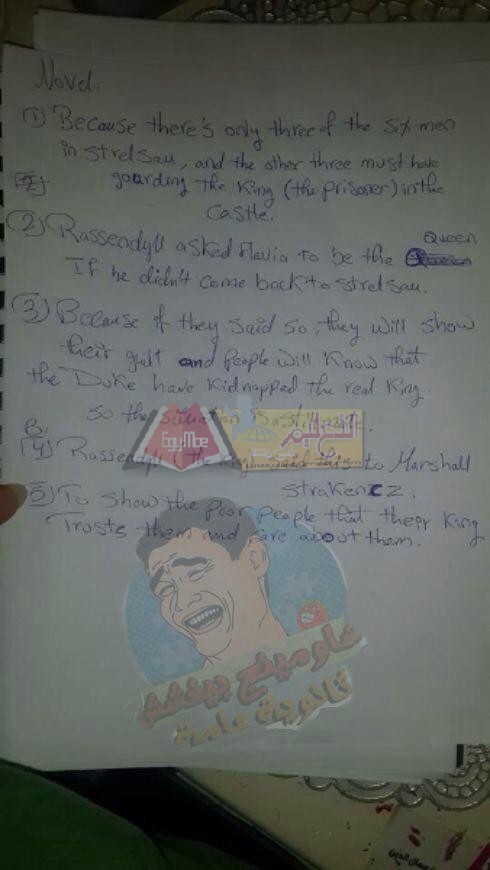 Novel.
(1) Because there's only three of the six men
in Strelsau, and the other three must have
gaurding the King (the prisoner) in the
Castle.
(2) Rassendyll asked Flavia to be the Queen
If he didn't come back to Strelsau.
(3) Because if they said so, they will show
their guilt and people will know that
the Duke have kidnapped the real King.
so the situation
B.
(4) Rassendyll (the King) said this to Marshall
Strakencz.
(5) To show the poor people that their King
Trusts them and care about them.
EgyMoe
شاومينج بيغشش
ثانوية عامة